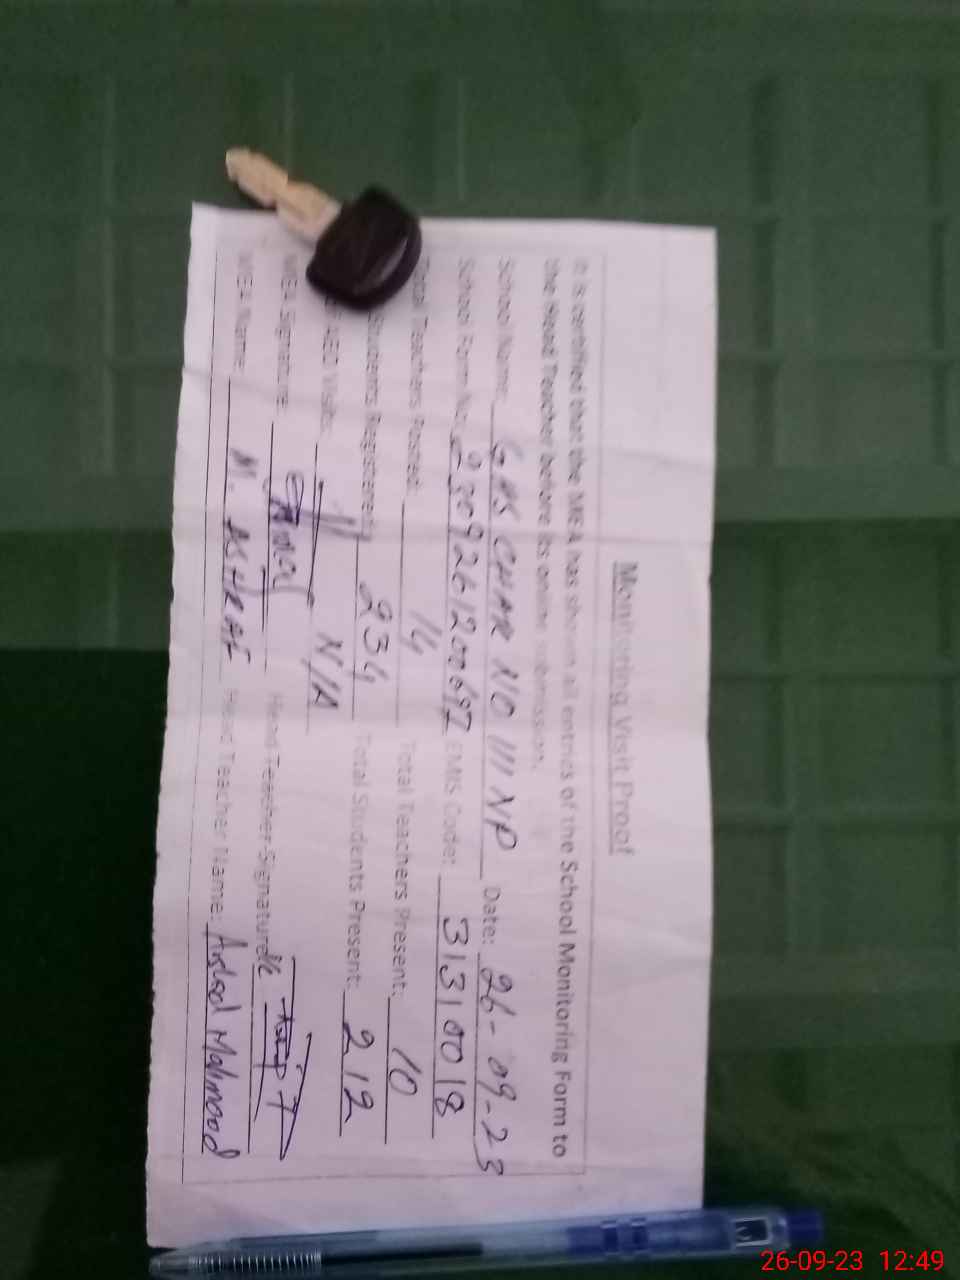 Monitoring Visit Proof
It is certified that the MEA has shown all entries of the School Monitoring Form to
the Head Teacher before its online submission.
School Name: GHS CHAK NO 111 NP Date: 26-09-23
School Form No: EMIS Code: 31310018
Total Teachers Posted: 14 Total Teachers Present: 10
Students Registered: 234 Total Students Present: 212
Visit: N/A
MEA Signature: Head Teacher Signature:
MEA Name: M. ASHRAF Head Teacher Name: Mahmood
26-09-23 12:49